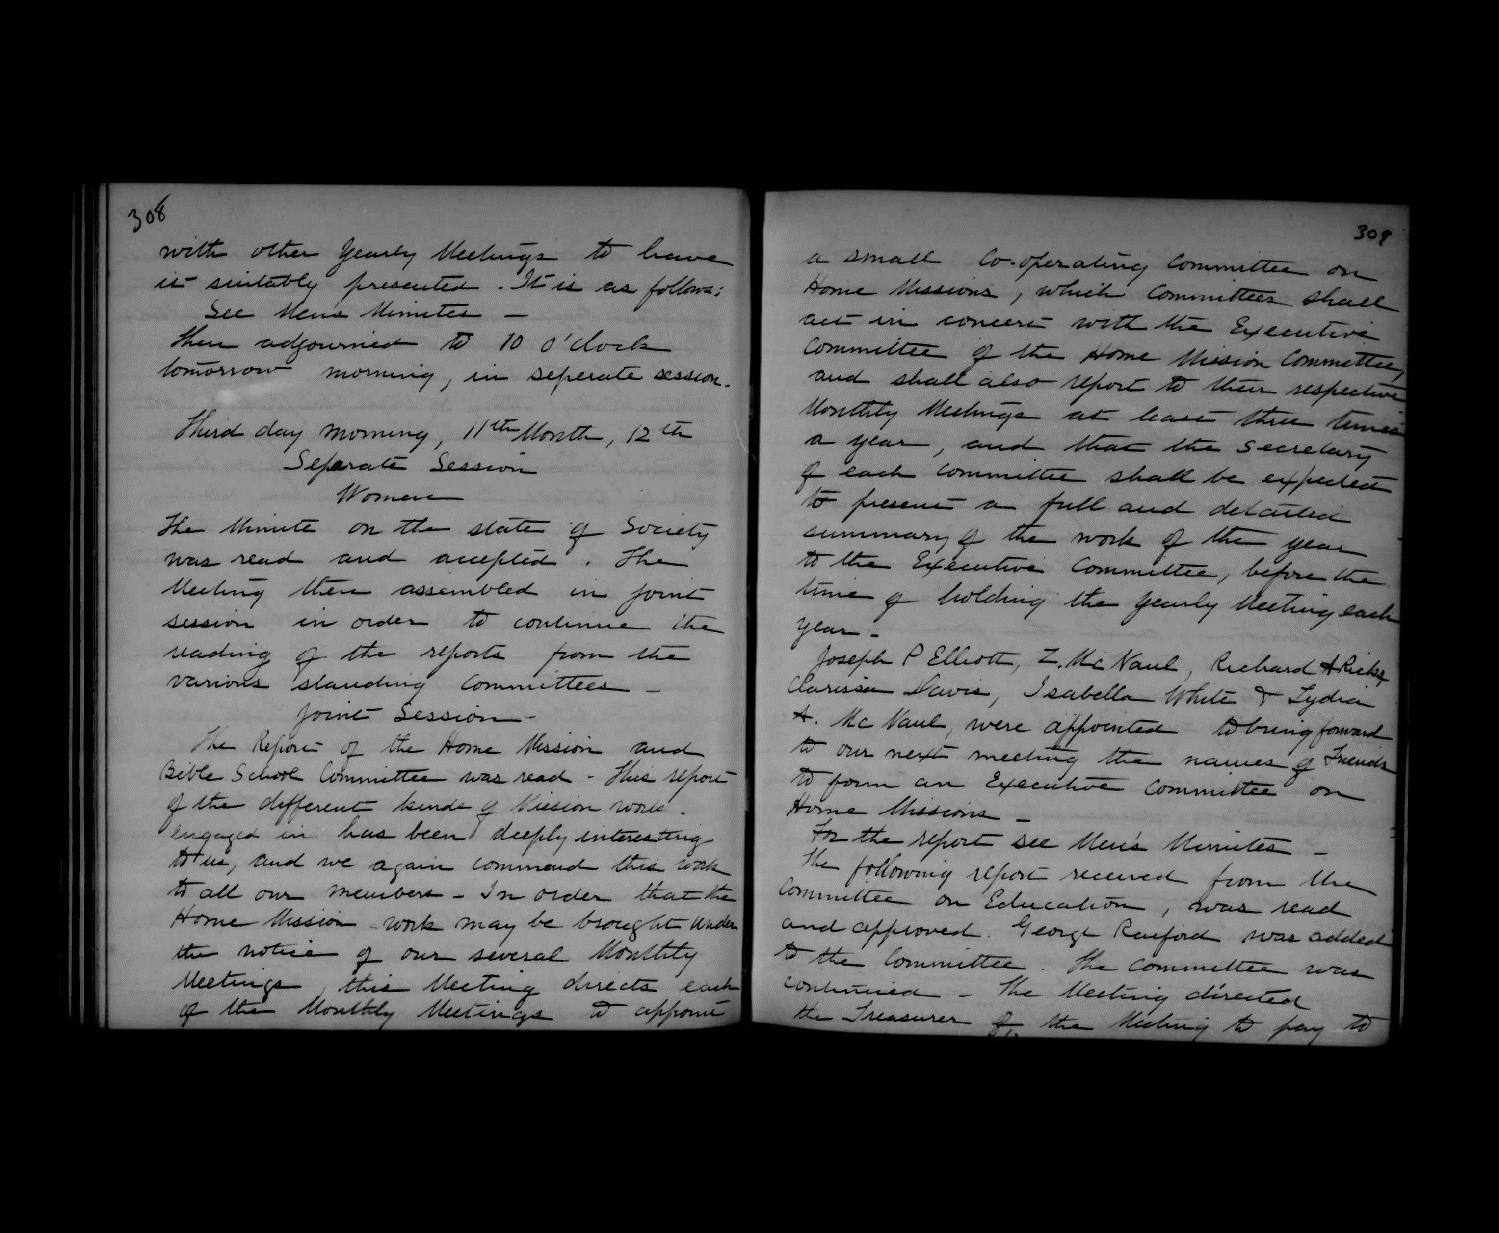 308
with other Yearly Meetings to have
it suitably presented. It is as follows:
See Mens Minutes -
Then adjourned to 10 o'clock
tomorrow morning, in seperate session.
Third day morning, 11th Month, 12th
Seperate Session
Women
The Minute on the state of Society
was read and accepted. The
Meeting then assembled in joint
session in order to continue the
reading of the reports from the
various standing Committees -
Joint Session -
The Report of the Home Mission and
Bible School Committee was read - This report
of the different kinds of Mission work
engaged in has been deeply interesting
to us, and we again commend this work
to all our members - In order that the
Home Mission work may be brought under
the notice of our several Monthly
Meetings, this Meeting directs each
of the Monthly Meetings to appoint
309
a small Co-operating Committee on
Home Missions, which Committees shall
act in concert with the Executive
Committee of the Home Mission Committee,
and shall also report to their respective
Monthly Meetings at least three times
a year, and that the Secretary
of each Committee shall be expected
to present a full and detailed
summary of the work of the year
to the Executive Committee, before the
time of holding the Yearly Meeting each
year -
Joseph P Elliott, Z. McNaul, Richard A Ricks,
Clarissa Davis, Isabella White & Lydia
A. McNaul, were appointed to bring forward
to our next meeting the names of Friends
to form an Executive Committee on
Home Missions -
For the report see Men's Minutes -
The following report received from the
Committee on Education, was read
and approved. George Rayford was added
to the Committee. The Committee was
continued - The Meeting directed
the Treasurer of the Meeting to pay to